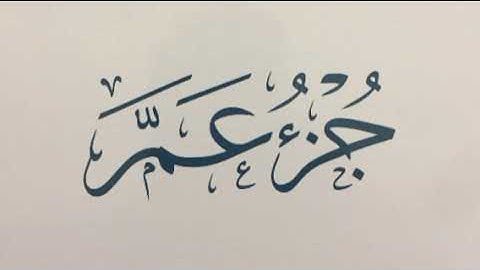 جُزءُ عَمَّ